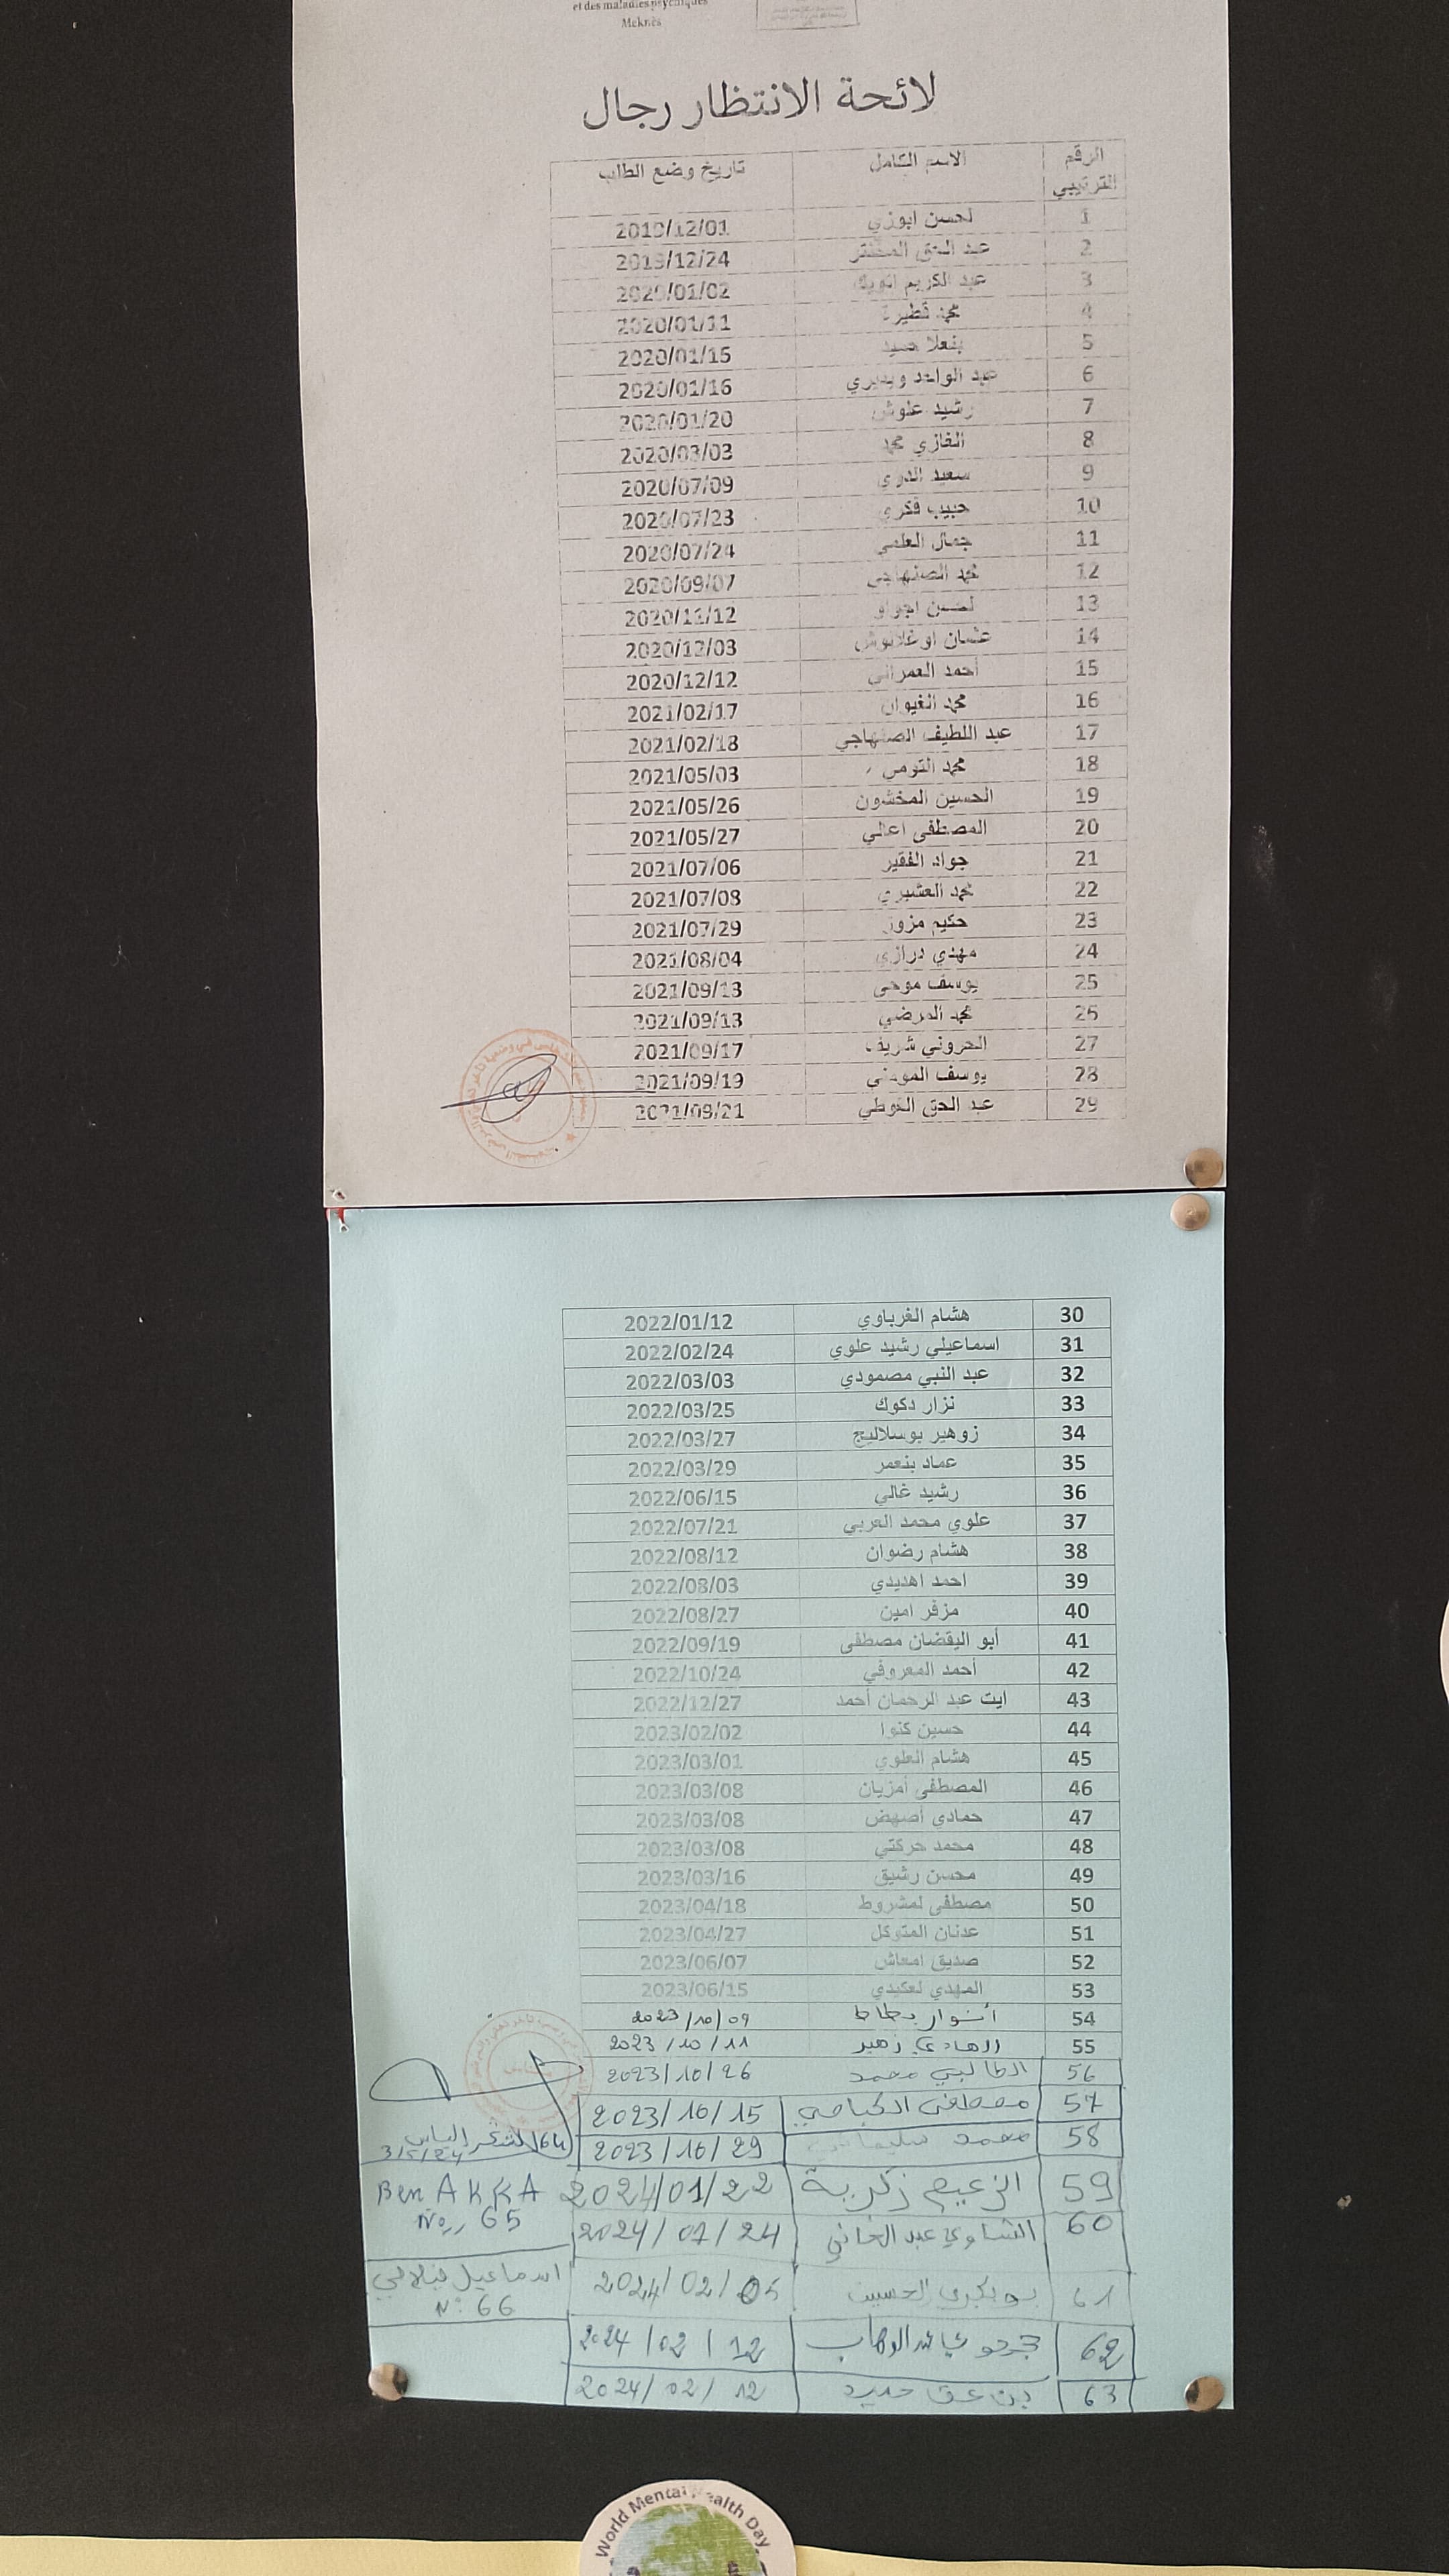 et des maladies psychiques
Meknès
لائحة الانتظار رجال
الرقم الترتيبي الاسم الكامل تاريخ وضع الطلب
1 لحسن ابوزي 2019/12/01
2 عبد الحق 2019/12/24
3 عبد الكريم 2020/01/02
4 محمد 2020/01/11
5 بنعلا 2020/01/15
6 عبد الواحد 2020/01/16
7 رشيد علوش 2020/01/20
8 الغازي محمد 2020/03/03
9 سعيد الدري 2020/07/09
10 حبيب فكري 2020/07/23
11 جمال العلمي 2020/07/24
12 محمد الصنهاجي 2020/09/07
13 لحسن 2020/11/12
14 عثمان 2020/12/03
15 أحمد العمراني 2020/12/12
16 محمد الغيوان 2021/02/17
17 عبد اللطيف الصنهاجي 2021/02/18
18 محمد التومي 2021/05/03
19 الحسين المخشون 2021/05/26
20 المصطفى اعالي 2021/05/27
21 جواد الفقير 2021/07/06
22 محمد العشيري 2021/07/08
23 حكيم مزوز 2021/07/29
24 مهدي درازي 2021/08/04
25 يوسف موحى 2021/09/13
26 محمد المرضي 2021/09/13
27 الحروني شريف 2021/09/17
28 يوسف المومني 2021/09/19
29 عبد الحق الغوطي 2021/09/21
30 هشام الغرباوي 2022/01/12
31 اسماعيلي رشيد علوي 2022/02/24
32 عبد النبي مصمودي 2022/03/03
33 نزار دكوك 2022/03/25
34 زوهير بوسلاليج 2022/03/27
35 عماد بنعمر 2022/03/29
36 رشيد غالي 2022/06/15
37 علوي محمد العربي 2022/07/21
38 هشام رضوان 2022/08/12
39 احمد اهديدي 2022/08/03
40 مزفر امين 2022/08/27
41 أبو اليقضان مصطفى 2022/09/19
42 أحمد المعروفي 2022/10/24
43 ايت عبد الرحمان أحمد 2022/12/27
44 حسين كنوا 2023/02/02
45 هشام العلوي 2023/03/01
46 المصطفى أمزيان 2023/03/08
47 حمادي أصهض 2023/03/08
48 محمد حركتي 2023/03/08
49 محسن رشيق 2023/03/16
50 مصطفى لمشروط 2023/04/18
51 عدنان المتوكل 2023/04/27
52 صديق امعاش 2023/06/07
53 المهدي لعكيدي 2023/06/15
54 أنوار بطاط 2023/10/09
55 الهادي زهير 2023/10/11
56 الطالبي محمد 2023/10/26
57 مصطفى الكباصي 2023/10/15
58 محمد 2023/10/29
59 الزعيم زكرية 2024/01/22
60 الشاوي عبد الغاني 2024/01/24
61 بوبكري الحسين 2024/02/05
62 عبد الوهاب 2024/02/12
63 بن عق حديد 2024/02/12
64 لشقر الياس
3/5/24
Ben AKKA
No 65
اسماعيل فيلالي
N° 66
World Mental Health Day